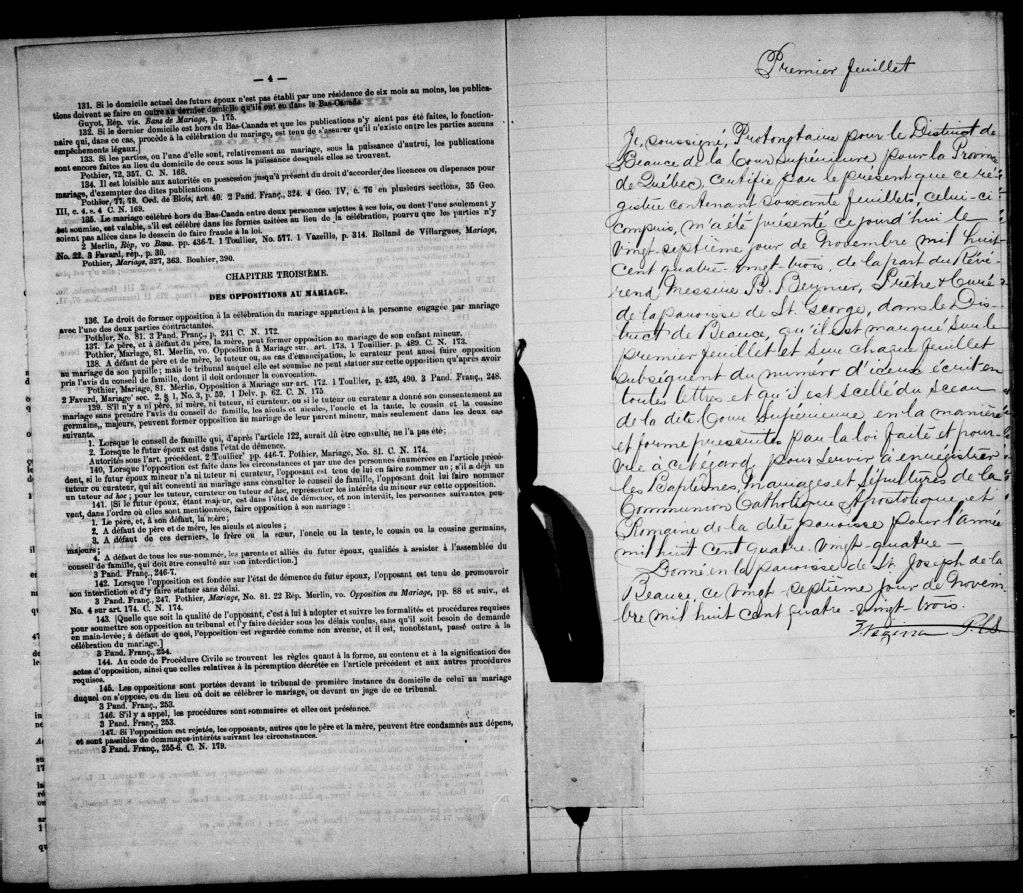 — 4 —
131. Si le domicile actuel des futurs époux n'est pas établi par une résidence de six mois au moins, les publica-
tions doivent se faire en outre au dernier domicile qu'ils ont eu dans le Bas-Canada.
Guyot, Rép. vis. Bans de Mariage, p. 175.
132. Si le dernier domicile est hors du Bas-Canada et que les publications n'y aient pas été faites, le fonction-
naire qui, dans ce cas, procède à la célébration du mariage, est tenu de s'assurer qu'il n'existe entre les parties aucuns
empêchements légaux.
133. Si les parties, ou l'une d'elle sont, relativement au mariage, sous la puissance d'autrui, les publications
sont encore faites au lieu du domicile de ceux sous la puissance desquels elles se trouvent.
Pothier, 72, 357. C. N. 168.
134. Il est loisible aux autorités en possession jusqu'à présent du droit d'accorder des licences ou dispenses pour
mariage, d'exempter des dites publications.
Pothier, 77, 78. Ord. de Blois, art. 40. 2 Pand. Franç., 324. 4 Geo. IV, c. 76 en plusieurs sections, 35 Geo.
III, c. 4. s. 4 C. N. 169.
135. Le mariage célébré hors du Bas-Canda entre deux personnes sujettes à ses lois, ou dont l'une seulement y
est soumise, est valable, s'il est célébré dans les formes usitées au lieu de la célébration, pourvu que les parties n'y
soient pas allées dans le dessein de faire fraude à la loi.
2 Merlin, Rép, vo Bans. pp. 436-7. 1 Toullier, No. 577. 1 Vazeille, p. 314. Rolland de Villargues, Mariage,
No. 22. 3 Favard, rép., p. 30.
Pothier, Mariage, 327, 363. Bouhier, 390.
CHAPITRE TROISIÈME.
DES OPPOSITIONS AU MARIAGE.
136. Le droit de former opposition à la célébration du mariage appartient à la personne engagée par mariage
avec l'une des deux parties contractantes.
Pothier, No. 81. 3 Pand. Franç., p. 241 C. N. 172.
137. Le père, et à défaut du père, la mère, peut former opposition au mariage de son enfant mineur.
Pothier, Mariage, 81. Merlin, vo. Opposition à Mariage sur. art. 173. 1 Toullier. p. 489. C. N. 173.
138. A défaut de père et de mère, le tuteur ou, au cas d'émancipation, le curateur peut aussi faire opposition
au mariage de son pupille ; mais le tribunal auquel elle est soumise ne peut statuer sur cette opposition qu'après avoir
pris l'avis du conseil de famille, dont il doit ordonner la convocation.
Pothier, Mariage, 81. Merlin, Opposition à Mariage sur art. 172. 1 Toullier, p. 425, 490. 3 Pand. Franç., 248.
2 Favard, Mariage' sec. 2, § 1, No. 3, p. 59. 1 Delv. p. 62. C. N. 175
139. S'il n'y a ni père, ni mère, ni tuteur, ni curateur, ou si le tuteur ou curateur a donné son consentement au
mariage sans prendre l'avis du conseil de famille, les aïeuls et aïeules, l'oncle et la tante, le cousin et la cousine
germains, majeurs, peuvent former opposition au mariage de leur parent mineur, mais seulement dans les deux cas
suivants.
1. Lorsque le conseil de famille qui, d'après l'article 122, aurait dû être consulté, ne l'a pas été ;
2. Lorsque le futur époux est dans l'état de démence.
Autorités sous l'art. précédent. 2 Toullier' pp. 446-7. Pothier, Mariage, No. 81. C. N. 174.
140, Lorsque l'opposition est faite dans les circonstances et par une des personnes énumérées en l'article précé-
dent, si le futur époux mineur n'a ni tuteur ni curateur, l'opposant est tenu de lui en faire nommer un ; s'il a déjà un
tuteur ou curateur, qui ait consenti au mariage sans consulter le conseil de famille, l'opposant doit lui faire nommer
un tuteur ad hoc ; pour les tuteur, curateur ou tuteur ad hoc, représenter les intérêts du mineur sur cette opposition.
141. [Si le futur époux, étant majeur, est dans l'état de démence, et non interdit, les personnes suivantes peu-
vent, dans l'ordre où elles sont mentionnées, faire opposition à son mariage :
1. Le père, et, à son défaut, la mère ;
2. A défaut de père et de mère, les aïeuls et aïeules ;
3. A défaut de ces derniers, le frère ou la sœur, l'oncle ou la tente, le cousin ou la cousine germains,
majeurs ;
4. A défaut de tous les sus-nommés, les parents et alliés du futur époux, qualifiés à assister à l'assemblée du
conseil de famille, qui doit être consulté sur son interdiction.]
3 Pand. Franç., 246-7.
142. Lorsque l'opposition est fondée sur l'état de démence du futur époux, l'opposant est tenu de promouvoir
son interdiction et d'y faire statuer sans délai.
3 Pand. Franç., 247. Pothier, Mariage, No. 81. 22 Rép. Merlin, vo. Opposition au Mariage, pp. 88 et suiv., et
No. 4 sur art. 174. C. N. 174.
143. [Quelle que soit la qualité de l'opposant, c'est à lui à adopter et suivre les formalités et procédures requises
pour soumettre son opposition au tribunal et l'y faire décider sous les délais voulus, sans qu'il soit besoin de demande
en main-levée ; à défaut de quoi, l'opposition est regardée comme non avenue, et il est, nonobstant, passé outre à la
célébration du mariage.]
3 Pand. Franç., 254.
144. Au code de Procédure Civile se trouvent les règles quant à la forme, au contenu et à la signification des
actes d'opposition, ainsi que celles relatives à la péremption décrétée en l'article précédent et aux autres procédures
requises.
145. Les oppositions sont portées devant le tribunal de première instance du domicile de celui au mariage
duquel on s'oppose, ou du lieu où doit se célébrer le mariage, ou devant un juge de ce tribunal.
3 Pand. Franç., 253.
146. S'il y a appel, les procédures sont sommaires et elles ont préséance.
3 Pand. Franç., 253.
147. Si l'opposition est rejetée, les opposants, autres que le père et la mère, peuvent être condamnés aux dépens,
et sont passibles de dommages-intérêts suivant les circonstances.
3 Pand. Franç., 255-6. C. N. 179.
Premier feuillet
Je, soussigné, Protonotaire pour le District de
Beauce de la Cour Supérieure pour la Province
de Québec, certifie par le présent que ce ré-
gistre contenant soixante feuillets, celui-ci
compris, m'a été présenté ce jourd'hui le
vingt-septième jour de Novembre mil huit
cent quatre-vingt-trois, de la part du Révé-
rend Messire B. Bernier, Prêtre & Curé
de la paroisse de St. George, dans le Dis-
trict de Beauce, qu'il est marqué sur le
premier feuillet et sur chaque feuillet
subséquent du numéro d'iceux écrit en
toutes lettres et qu'il est scellé du sceau
de la dite Cour Supérieure en la manière
et forme prescrites par la loi faite et pour-
vue à cet égard, pour servir à enregistrer
les Baptêmes, mariages et Sépultures de la
Communion Catholique, Apostolique et
Romaine de la dite paroisse pour l'année
mil huit cent quatre-vingt-quatre —
Donné en la paroisse de St. Joseph de la
Beauce, ce vingt-septième jour de Novem-
bre mil huit cent quatre-vingt trois.
P.C.S.